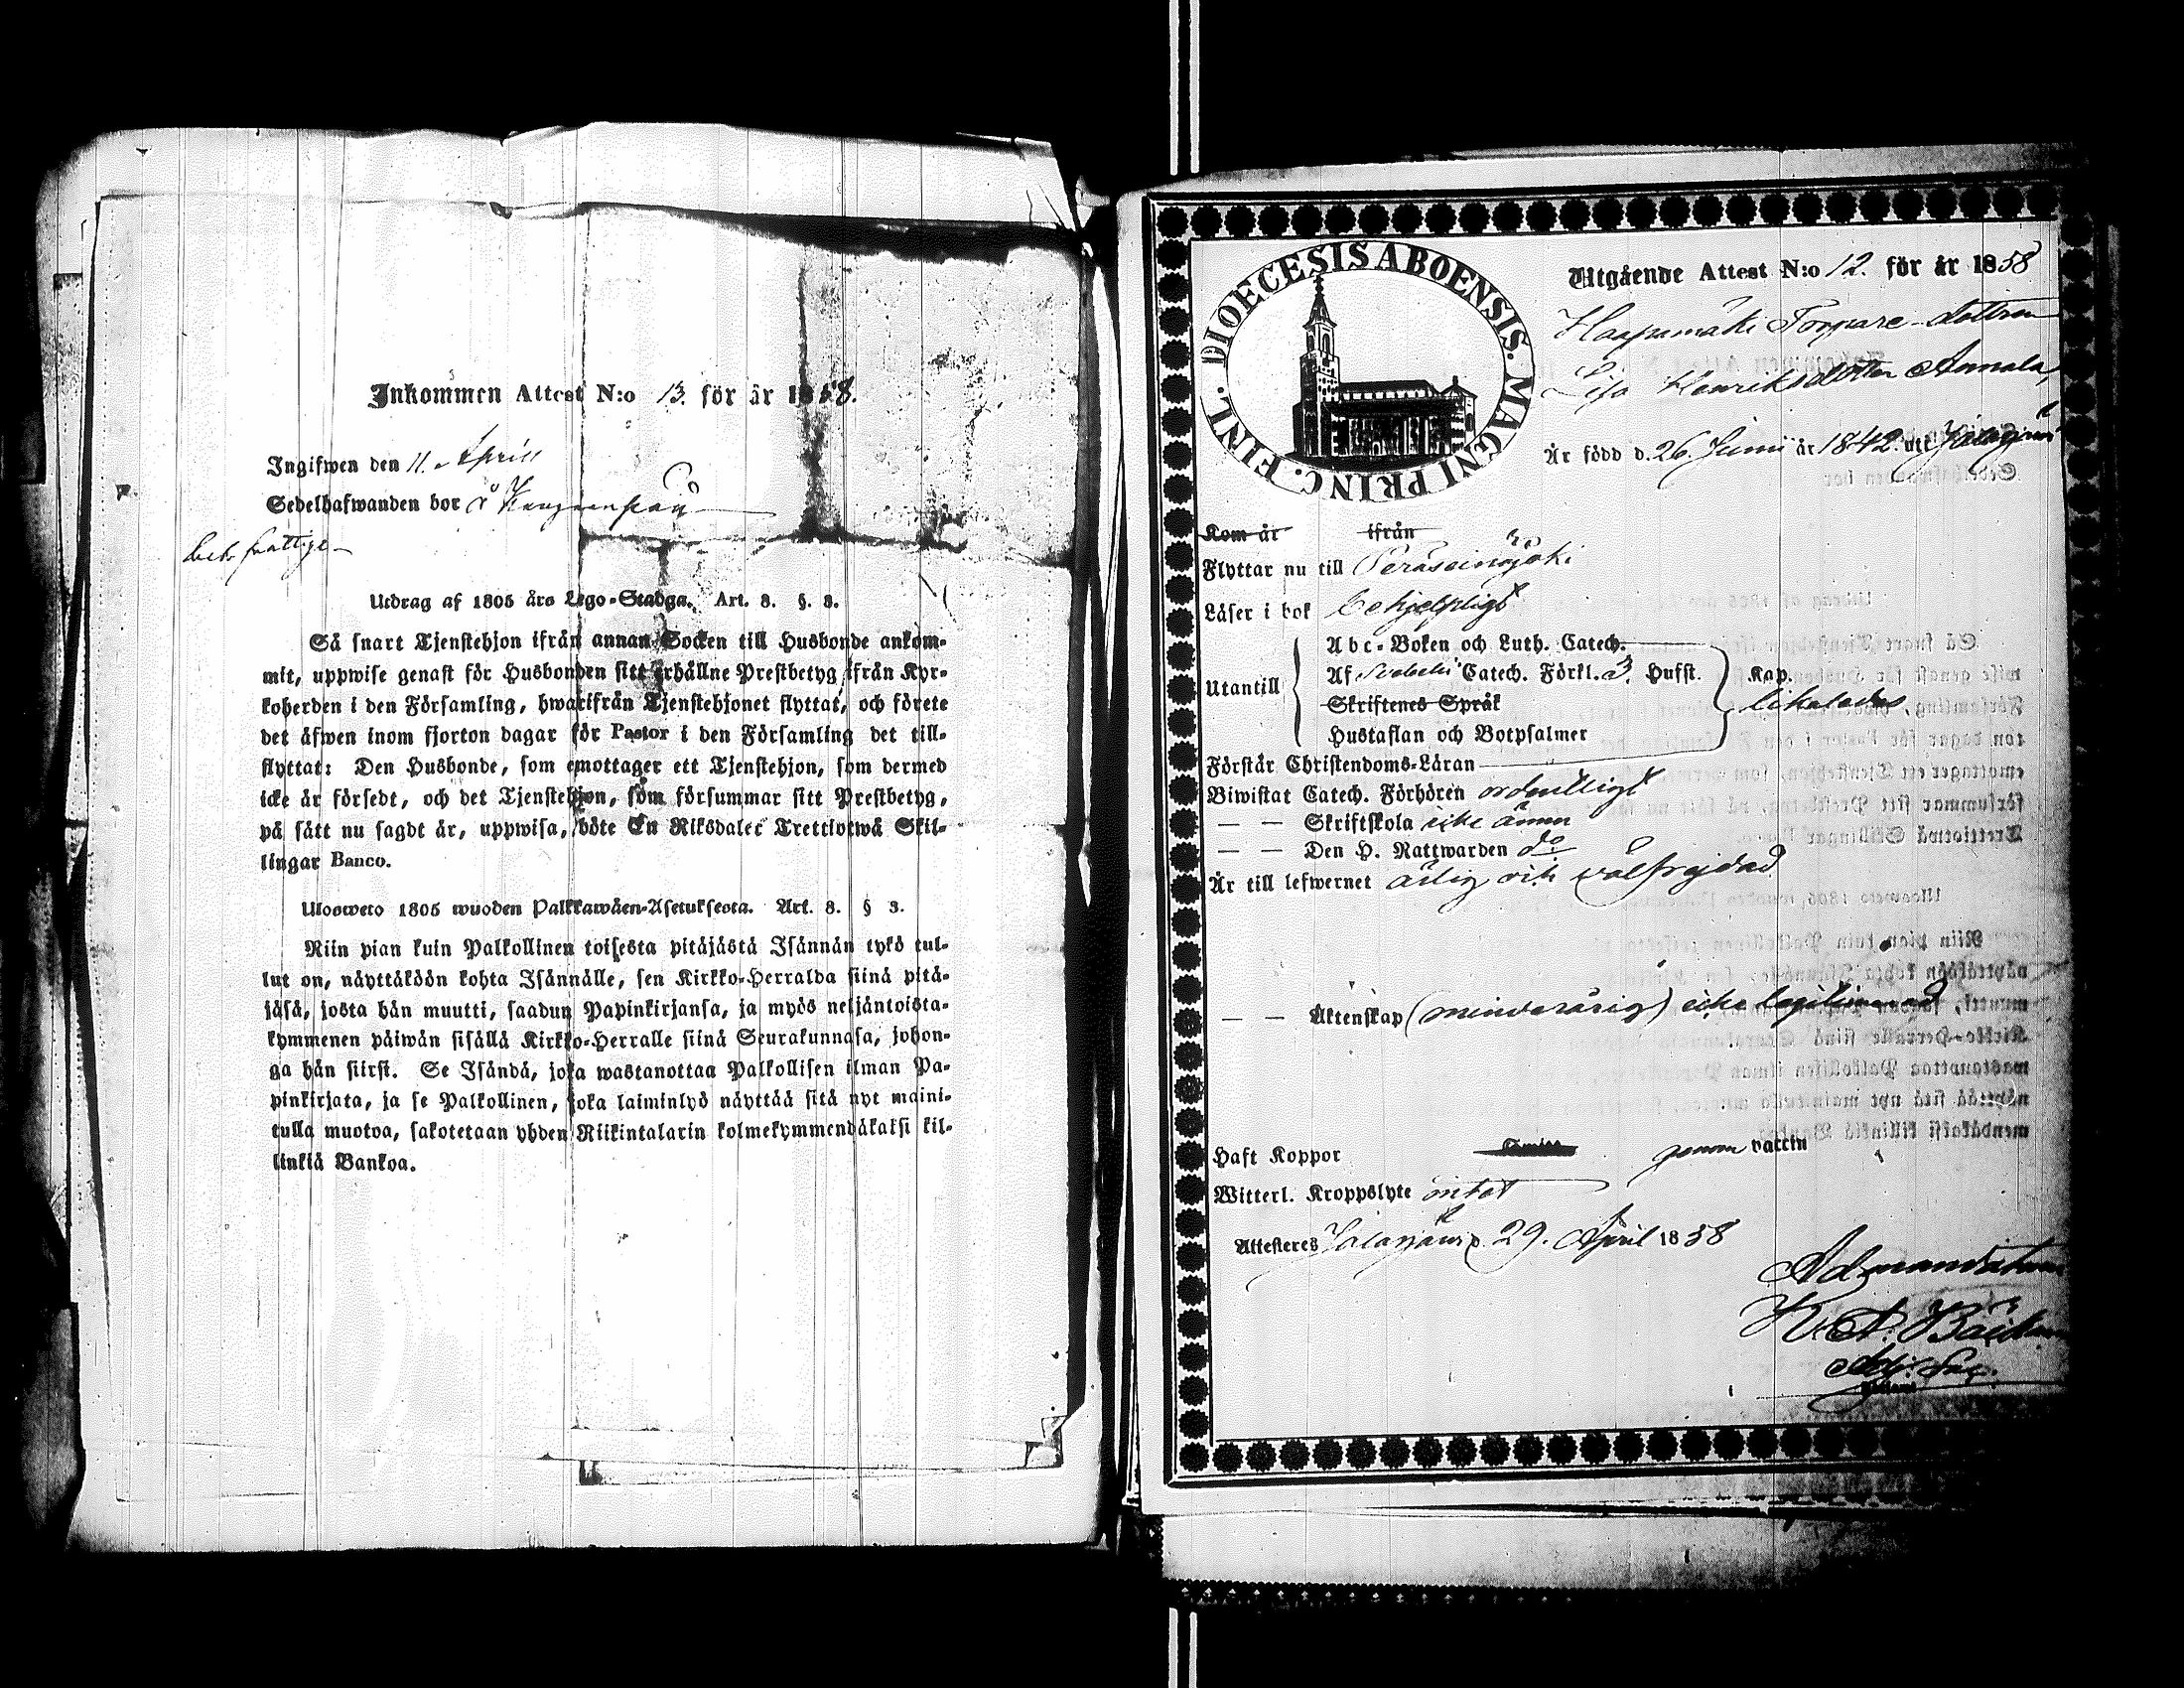 Inkommen Attest N:o 13. för år 1858.
Ingifwen den 11. April
Sedelhafwanden bor å
Utdrag af 1805 års Lego-Stadga. Art. 8. §. 3.
Så snart Tjenstehjon ifrån annan Socken till Husbonde ankom-
mit, uppwise genast för Husbonden sitt erhållne Prestbetyg ifrån Kyr-
koherden i den Församling, hwarifrån Tjenstehjonet flyttat, och förete
det äfwen inom fjorton dagar för Pastor i den Församling det till-
flyttat: Den Husbonde, som emottager ett Tjenstehjon, som dermed
icke är försedt, och det Tjenstehjon, som försummar sitt Prestbetyg,
på sätt nu sagdt är, uppwisa, böte En Riksdaler Trettiotwå Skil-
lingar Banco.
Ulosweto 1805 wuoden Palkkawäen-Asetuksesta. Art. 8. § 3.
Niin pian kuin Palkollinen toisesta pitäjästä Isännän tykö tul-
lut on, näyttäköön kohta Isännälle, sen Kirkko-Herralda siinä pitä-
jäsä, josta hän muutti, saadun Papinkirjansa, ja myös neljäntoista-
kymmenen päiwän sisällä Kirkko-Herralle siinä Seurakunnasa, johon-
ga hän siirst. Se Isändä, joka wastanottaa Palkollisen ilman Pa-
pinkirjata, ja se Palkollinen, joka laiminlyö näyttää sitä nyt maini-
tulla muotoa, sakotetaan yhden Riikintalarin kolmekymmendäkaksi kil-
linkiä Bankoa.
DIOECESIS ABOENSIS. MAGNI PRINC. FINL.
Utgående Attest N:o 12. för år 1858
Haapamäki Torpare-dottren
Lisa Henriksdotter Annala,
Är född d. 26 Junii år 1842. uti Jalasjärvi
Kom år ifrån
Flyttar nu till Peräseinäjoki
Läser i bok behjelpligt
Utantill
Abc-Boken och Luth. Catech.
Af Svebelii Catech. Förkl. 3. Hufst. Kap.
Skriftenes Språk likaledes
Hustaflan och Botpsalmer
Förstår Christendoms-Läran
Biwistat Catech. Förhören ordentligt
— — Skriftskola icke ännu
— — Den H. Nattwarden do
Är till lefwernet ärlig och välfrejdad
— — Äktenskap (minderårig) icke
Haft Koppor genom vaccin
Witterl. Kroppslyte intet
Attesteres Jalasjärvi d. 29. April 1858
Ad mandatum
Adj. Sac.